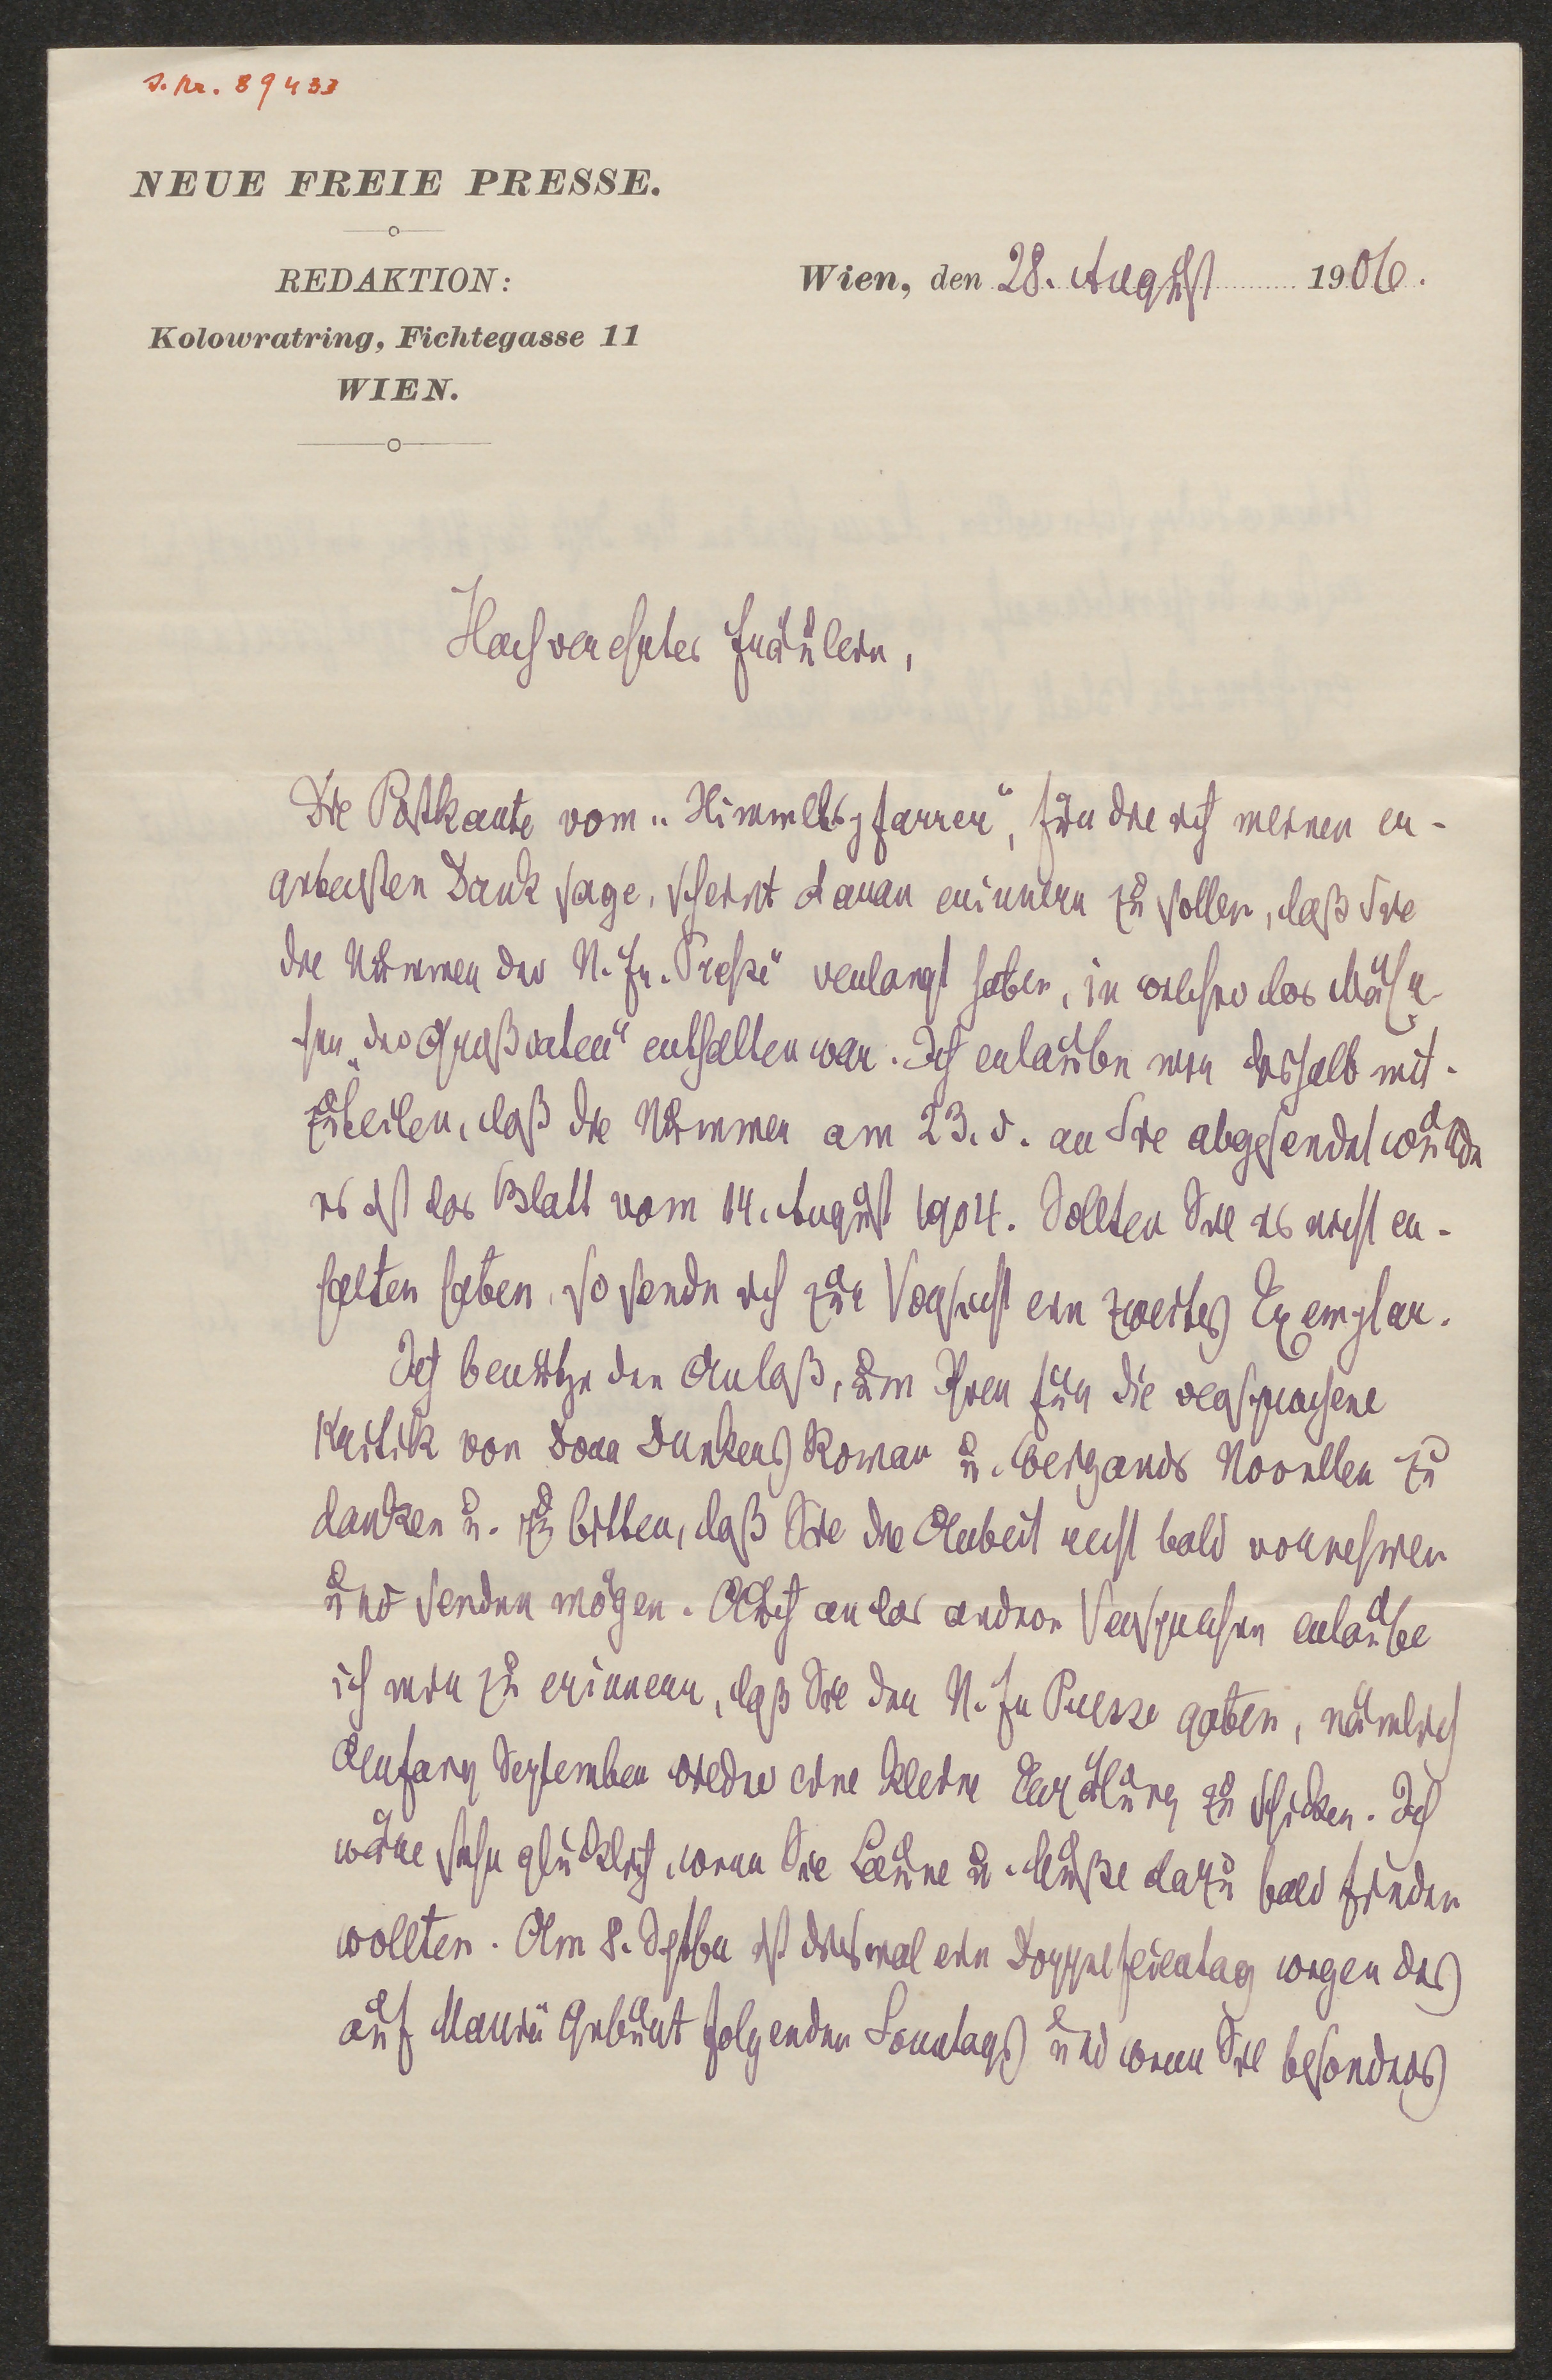 J. Nr. 89433
NEUE FREIE PRESSE.
REDAKTION:
Kolowratring, Fichtegasse 11
WIEN.
Wien, den 28. August 1906.
Hochverehrtes Fräulein,
Die Postkarte vom „Himmelspfarrer“, für die ich meinen er-
gebensten Dank sage, scheint daran erinnern zu sollen, daß Sie
die Nummer der N. Fr. Presse“ verlangt haben, in welcher das Mär-
chen „der Großvater“ enthalten war. Ich erlaube mir deshalb mit-
zuteilen, daß die Nummer am 23. d. an Sie abgesendet wurde
es ist das Blatt vom 14. August 1904. Sollten Sie es nicht er-
halten haben, so sende ich zur Vorsicht ein zweites Exemplar.
Ich benütze den Anlaß, um Ihnen für die versprochene
Kritik von Dora Dunkers Roman u. Weigands Novellen zu
danken u. zu bitten, daß Sie die Arbeit recht bald vornehmen
und senden mögen. Auch an das andere Versprechen erlaube
ich mir zu erinnern, daß Sie der N. Fr Presse gaben, nämlich
Anfang September wieder eine kleine Erzälung zu schicken. Ich
wäre sehr glücklich, wenn Sie Laune u. Muße dazu bald finden
wollten. Am 8. Septbr ist diesmal ein Doppelfeiertag wegen des
auf Mariä Geburt folgenden Sonntags und wenn Sie besonders